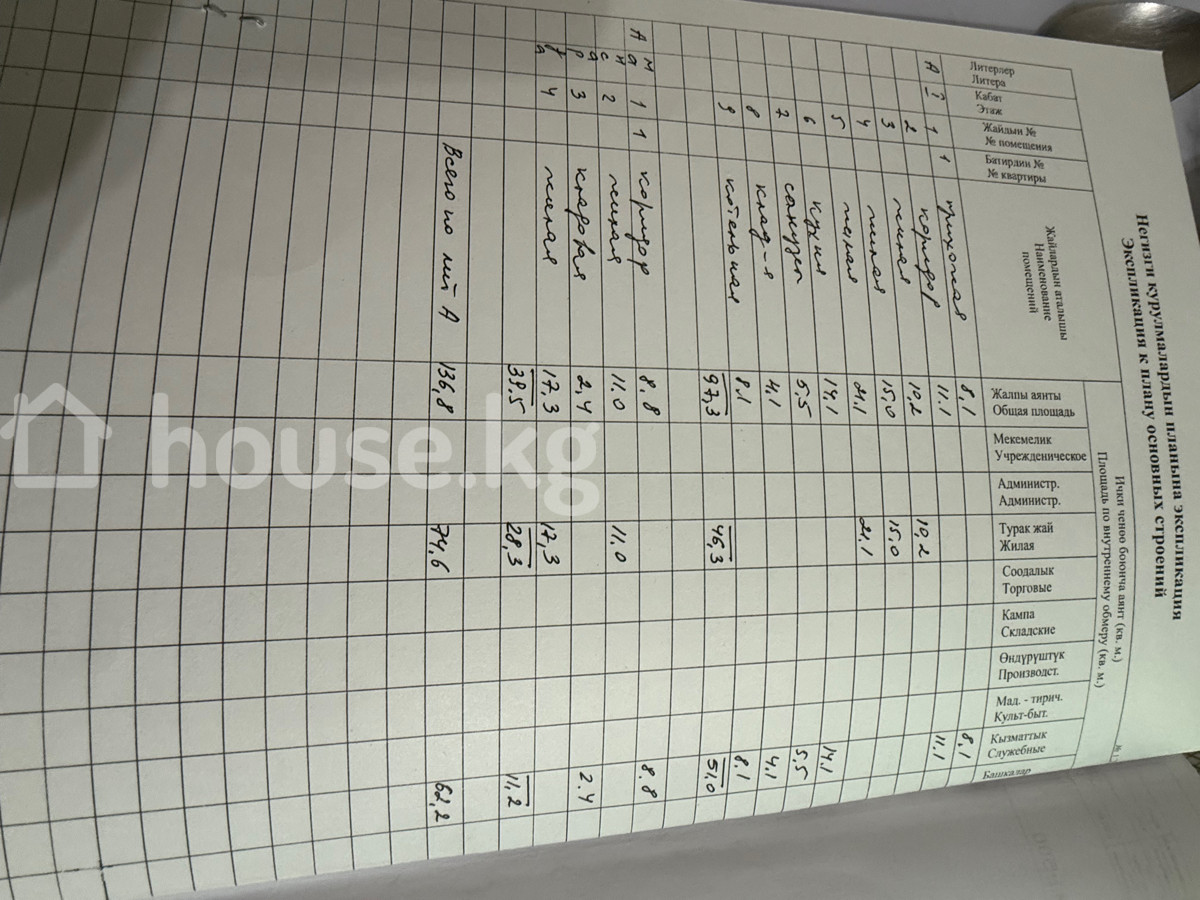 Негизги курулмалардын планына экспликация
Экспликация к плану основных строений
Литерлер
Литера
Кабат
Этаж
Жайдын №
№ помещения
Батирдин №
№ квартиры
Жайлардын аталышы
Наименование
помещений
Ички ченөө боюнча аянт (кв. м.)
Площадь по внутреннему обмеру (кв. м.)
Жалпы аянты
Общая площадь
Мекемелик
Учрежденическое
Админиcтр.
Администр.
Турак жай
Жилая
Соодалык
Торговые
Кампа
Складские
Өндүрүштүк
Производст.
Мад. - тирич.
Культ-быт.
Кызматтык
Служебные
Башкалар
А 1 1 1 прихожая 8,1 8,1
11.1 11.1
2 коридор 10,2 10,2
3 жилая 15,0 15,0
4 жилая 21,1 21,1
5 жилая 14,1 14,1
6 кухня 5,5 5,5
7 санузел 4,1 4,1
8 клад-я 8.1 8.1
9 котельная 97,3 46,3 51,0
А м 1 1 коридор 8.8 8.8
а н 2 жилая 11.0 11.0
с а р 3 кладовая 2,4 2.4
д 4 жилая 17,3 17,3
39,5 28,3 11,2
Всего по лит А 136,8 74,6 62,2
house.kg